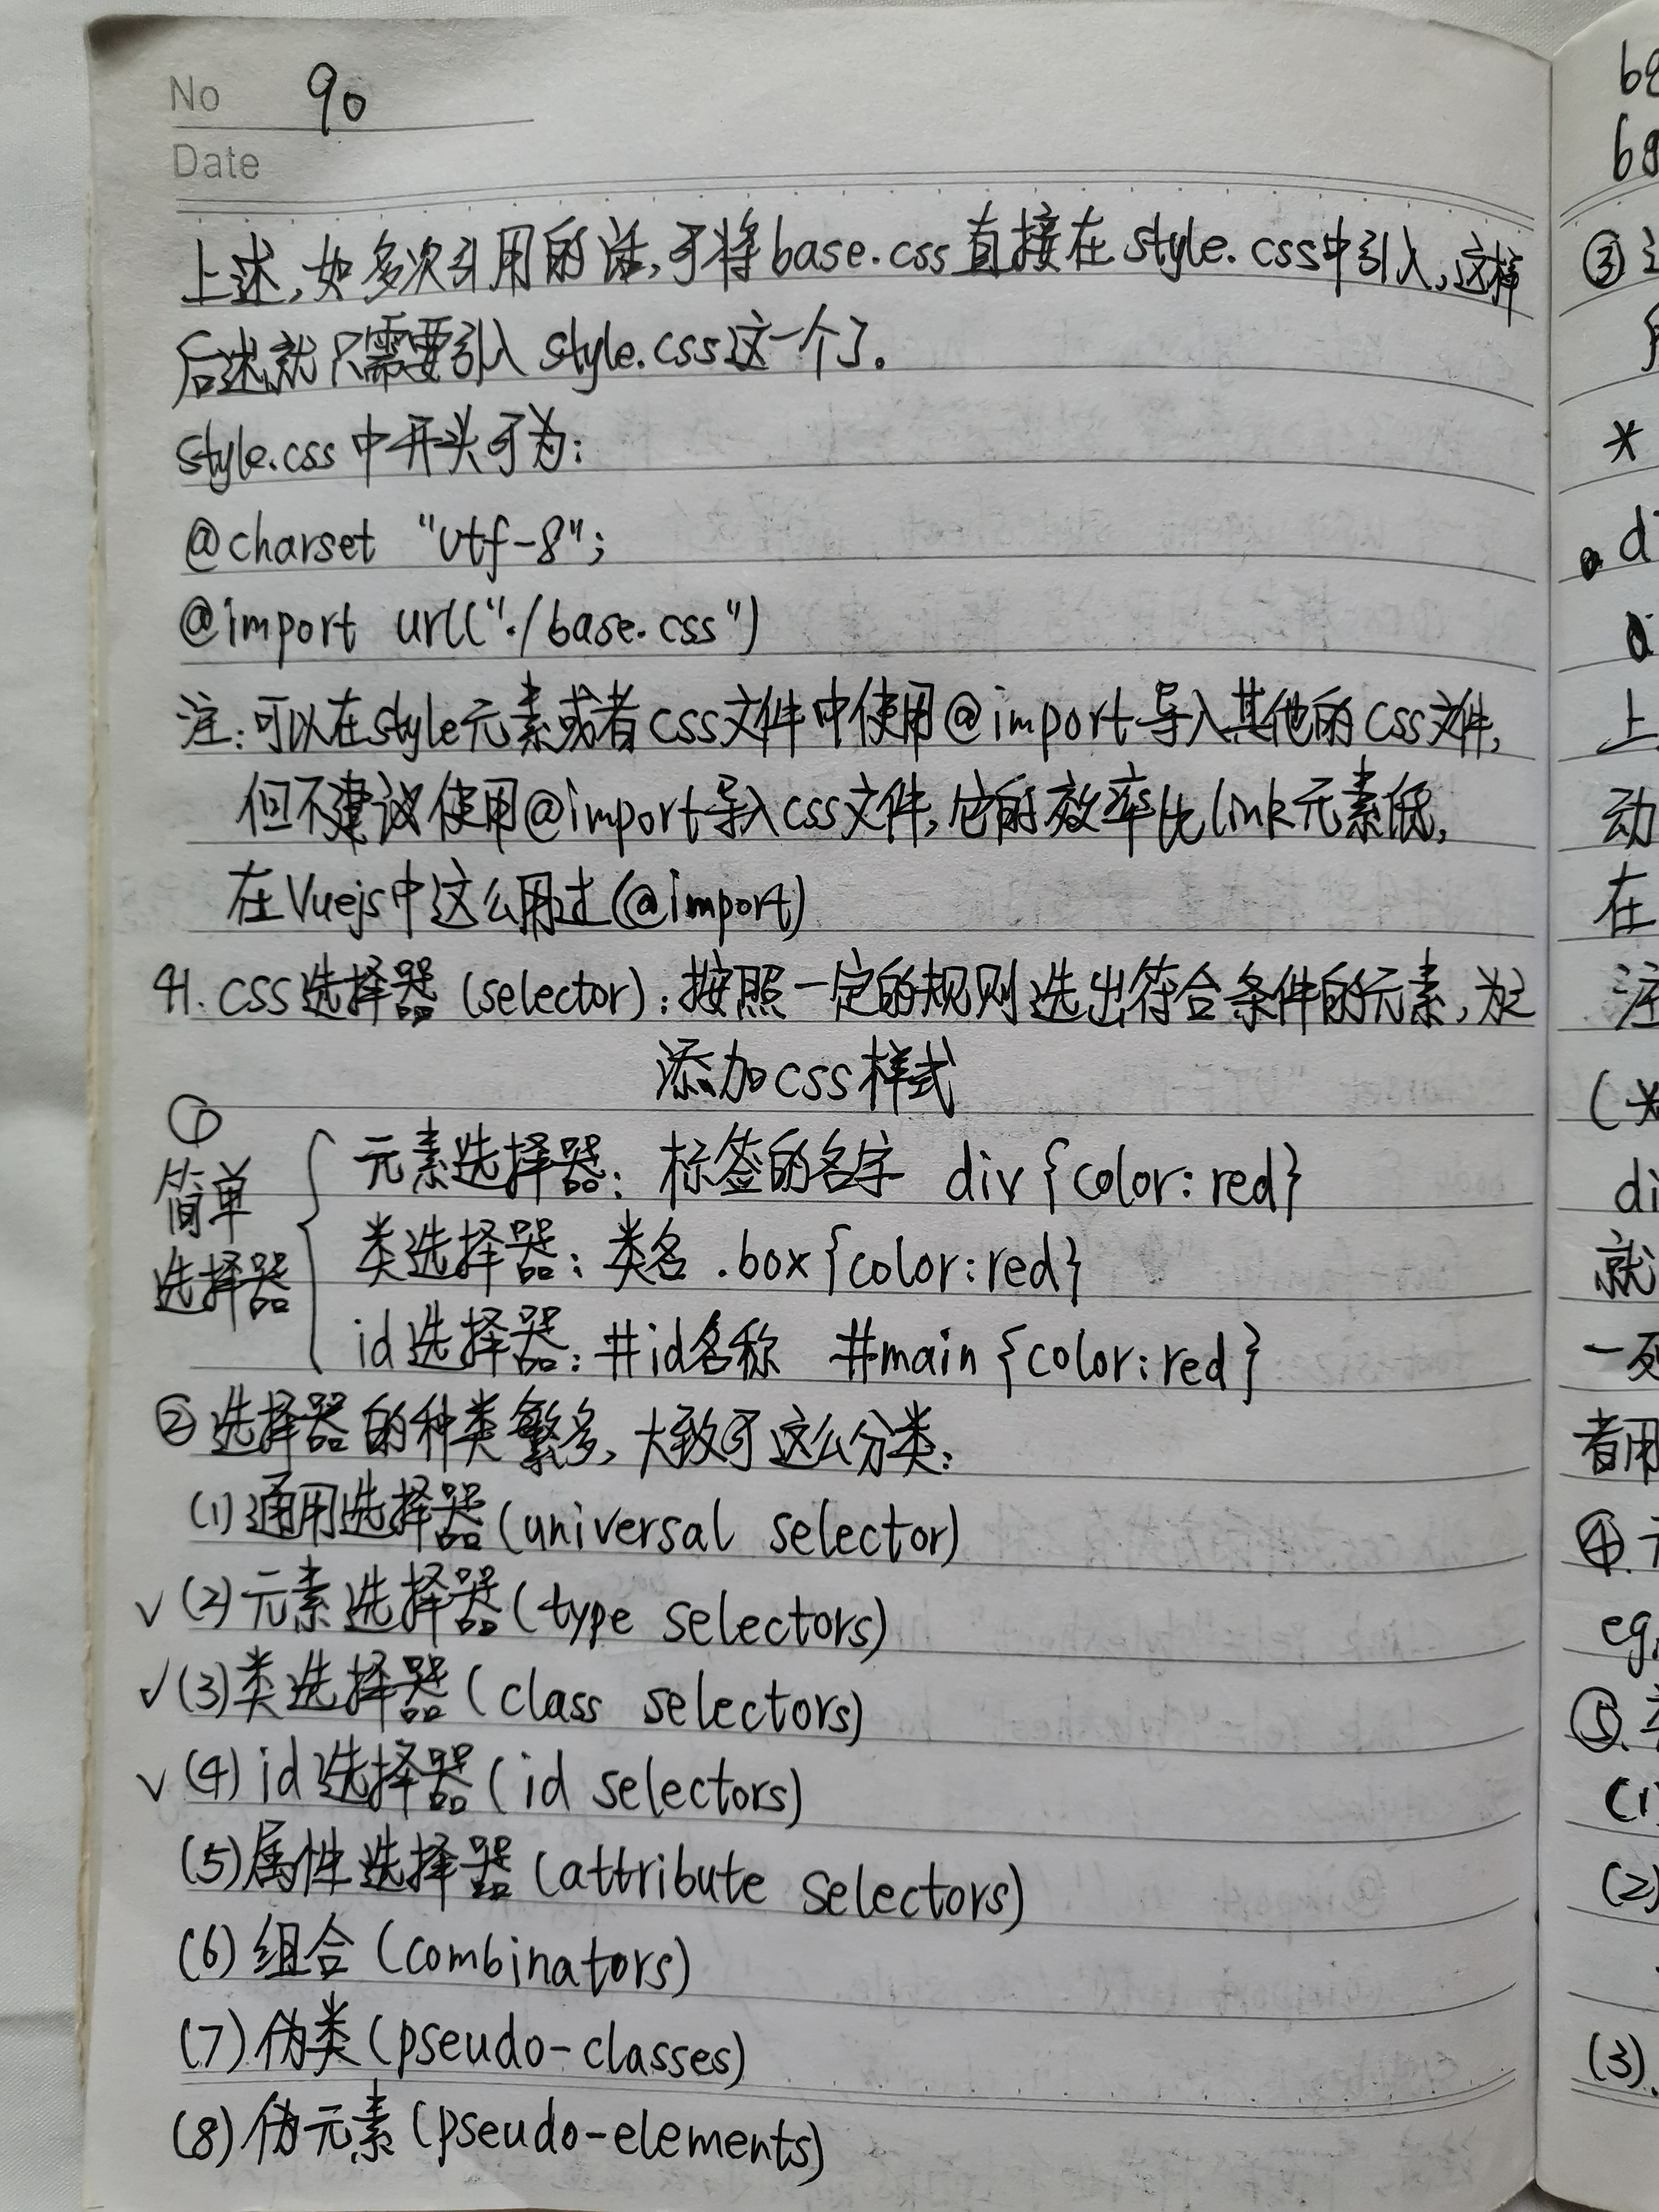 No 90
Date
上述,如多次引用的话,可将base.css直接在style.css中引入,这样
后述就只需要引入style.css这一个了。
style.css中开头可为:
@charset "utf-8";
@import url("./base.css")
注:可以在style元素或者css文件中使用@import导入其他的css文件,
但不建议使用@import导入css文件,它的效率比link元素低,
在Vuejs中这么用过(@import)
41. css选择器(selector):按照一定的规则选出符合条件的元素,为之
添加css样式
①
简单
选择器
元素选择器:标签的名字 div{color:red}
类选择器:类名 .box{color:red}
id选择器:#id名称 #main{color:red}
②选择器的种类繁多,大致可这么分类:
(1)通用选择器(universal selector)
√(2)元素选择器(type selectors)
√(3)类选择器(class selectors)
√(4)id选择器(id selectors)
(5)属性选择器(attribute selectors)
(6)组合(combinators)
(7)伪类(pseudo-classes)
(8)伪元素(pseudo-elements)
③
*
上
动
在
注
就
者用
④
eg.
⑤
(1)
(2)
(3).